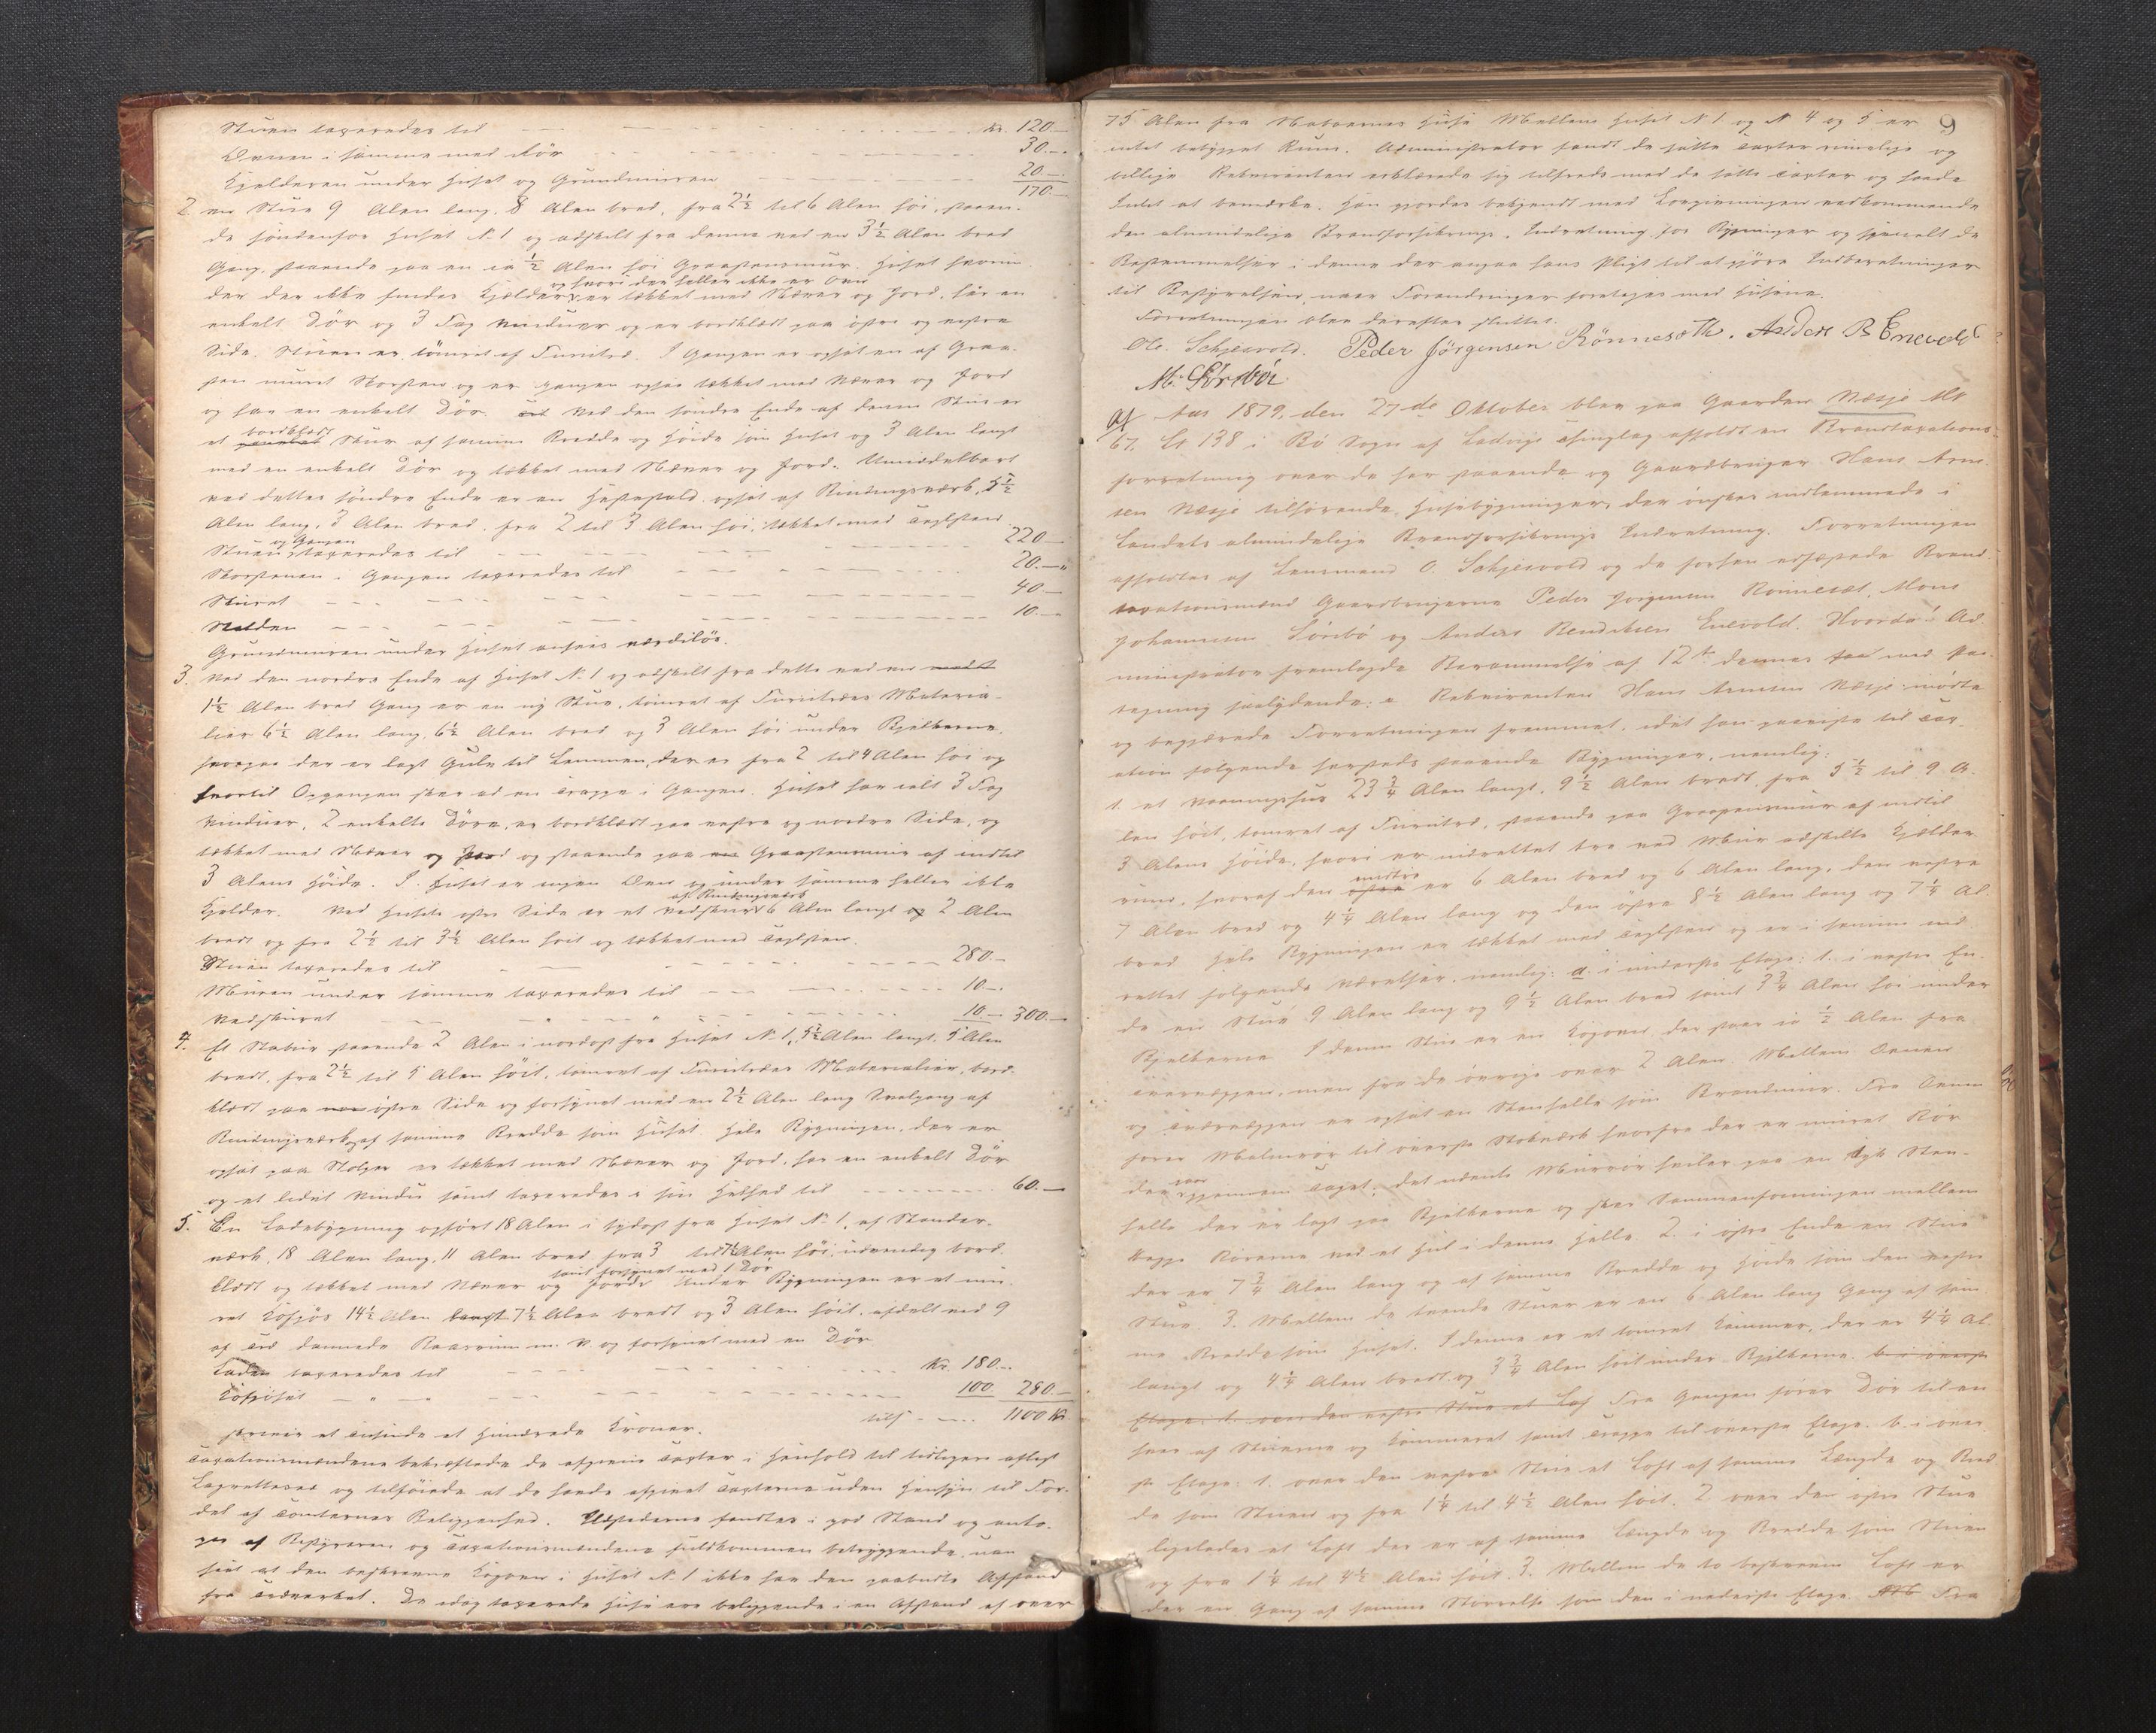 Stuen taxeredes til Kr. 120.—
Ovnen i samme med Rör 30.—
Kjelderen under Huset og Grundmuren 20.—
170.—
2. en Stue 9 Alen lang, 8 Alen bred, fra 2½ til 6 Alen höi, staaen-
de söndenfor Huset N. 1 og adskilt fra denne ved en 3½ Alen bred
Gang, staaende paa en ca ½ Alen höi Graastensmur. Huset hvorun-
og hvori der heller ikke er Ovn
der der ikke findes Kjelder, er tækket med Næver og Jord, har en
enkelt Dör og 3 Fag Vinduer og er bordklædt paa östre og vestre
Side. Stuen er tömret af Furutræ. I Gangen er opsat en af Graa-
sten muret Skorsten og er Gangen ogsaa tækket med Næver og Jord
og har en enkelt Dör. Ved den söndre Ende af denne Stue er
bordklædt
et Skur af samme Bredde og Höide som Huset og 3 Alen langt
med en enkelt Dör og tækket med Næver og Jord. Umiddelbart
ved dettes söndre Ende er en Hestestald opsat af Bindingsværk, 5½
Alen lang, 3 Alen bred, fra 2 til 3 Alen höi, tækket med Taglsten
og Gangen
Stuen taxeredes til 220.—
Skorstenen i Gangen taxeredes til 20.—
Skuret 40.—
Stalden 10.—
Grundmuren under Huset ansees værdilös.
3. Ved den nordre Ende af Huset N. 1 og adskilt fra dette ved en
1½ Alen bred Gang er en ny Stue, tömret af Furutræes Materia-
lier 6½ Alen lang, 6½ Alen bred og 3 Alen höi under Bjelkerne,
hvorpaa der er lagt Gulv til Lemmen, der er fra 2 til 4 Alen höi og
hvortil Opgangen sker ad en Trappe i Gangen. Huset har ialt 3 Fag
Vinduer, 2 enkelte Döre, er bordklædt paa vestre og nordre Side, og
tækket med Næver og Jord og staaende paa Graastensmur af indtil
3 Alens Höide. I Huset er ingen Ovn og under samme heller ikke
af Bindingsværk
Kjelder. Ved Husets östre Side er et Vedskur 6 Alen langt og 2 Alen
bredt og fra 2½ til 3½ Alen höit og tækket med Taglsten.
Stuen taxeredes til 280.—
Muren under samme taxeredes til 10.—
Vedskuret 10.— 300.—
4. Et Stabur staaende 2 Alen i nordost fra Huset N. 1, 5½ Alen langt, 5 Alen
bredt, fra 2½ til 5 Alen höit, tömret af Furutræes Materialier, bord-
klædt paa östre Side og forsynet med en 2½ Alen lang Svalgang af
Bindingsværk af samme Bredde som Huset. Hele Bygningen, der er
opsat paa Stolper er tækket med Næver og Jord, har en enkelt Dör
og et lidet Vindu samt taxeredes i sin Helhed til 60.—
5. En Ladebygning opfört 18 Alen i sydost fra Huset N. 1, af Stander-
værk, 18 Alen lang, 11 Alen bred, fra 3 til 7½ Alen höi, udvendig bord-
samt forsynet med 1 Dör
klædt og tækket med Næver og Jord. Under Bygningen er et mu-
ret Kofjös 14½ Alen langt 7½ Alen bredt og 3 Alen höit, afdelt ved 9
af Træ dannede Baasrum m. v. og forsynet med en Dör
Laden taxeredes til Kr. 180.—
Kofjöset — " — 100 280.—
tils. 1100 Kr.
skriver et Tusinde et Hundrede Kroner.
Taxationsmændene bekræftede de afgivne Taxter i Henhold til tidligere aflagt
Lagretteseed og tilföiede at de havde afgivet Taxterne uden Hensyn til For-
del af Tomternes Beliggenhed. Ildstederne fandtes i god Stand og anto-
ges af Bestyreren og Taxationsmændene fuldkommen betryggende, uan-
seet at den beskrevne Kogovn i Huset N. 1 ikke har den paabudte Afstand
fra Træværket. De idag taxerede Huse ere beliggende i en Afstand af over
9
75 Alen fra Naboernes Huse. Mellem Huset N. 1 og N. 4 og 5 er
intet bebygget Rum. Administrator fandt de satte Taxter rimelige og
billige. Rekvirenten erklærede sig tilfreds med de satte Taxter og havde
Intet at bemærke. Han gjordes bekjendt med Lovgivningen vedkommende
den almindelige Brandforsikrings-Indretning for Bygninger og specielt de
Bestemmelser i denne der angaa hans Pligt til at gjöre Indberetninger
til Bestyrelsen, naar Forandringer foretages med Husene.
Forretningen blev derefter sluttet.
Ole Schjesvold. Peder Jörgensen Rönnesæth. Anders B Enevold
M. Sörebö
Aar 1879, den 27de Oktober blev paa Gaarden Næsje M.
67, Lr 138 i Bö Sogn af Ladvigs Thinglag afholdt en Brandtaxations-
forretning over de her staaende og Gaardbruger Hans Arne-
sen Næsje tilhörende Husebygninger, der önskes indlemmede i
Landets almindelige Brandforsikrings Indretning. Forretningen
afholdtes af Lensmand O. Schjesvold og de forhen edfæstede Brand-
taxationsmænd Gaardbrugerne Peder Jörgensen Rönnesæt, Mons
Johannesen Sörebö og Anders Bendiksen Enevold. Hvorda: Ad-
ministrator fremlagde Berammelse af 12te dennes med Paa-
tegning saalydende: Rekvirenten Hans Arnesen Næsje mödte
og begjærede Forretningen fremmet, idet han paaviste til Tax-
ation fölgende herpaa staaende Bygninger, nemlig:
1. et Vaaningshus 23¾ Alen langt, 9½ Alen bredt, fra 5½ til 9 A-
len höit, tömret af Furutræ, staaende paa Graastensmur af indtil
3 Alens Höide, hvori er indrettet tre ved Mur adskilte Kjelder-
midtre
rum, hvoraf den er 6 Alen bred og 6 Alen lang, den vestre
7 Alen bred og 4¼ Alen lang og den östre 8½ Alen lang og 7¼ Al.
bred. Hele Bygningen er tækket med Taglsten og er i samme ind-
rettet fölgende Værelser, nemlig: a. i underste Etage: 1. i vestre En-
de en Stue 9 Alen lang og 9½ Alen bred samt 3¾ Alen höi under
Bjelkerne. I denne Stue er en Kogovn der staar ca ½ Alen fra
Tværvæggen, men fra de övrige over 2 Alen. Mellem Ovnen
og Tværvæggen er opsat en Stenhelle som Brandmur. Fra Ovnen
förer Malmrör til överste Stokværk hvorfra der er muret Rör
gaar
der gjennem Taget; det nævnte Murrör hviler paa en tyk Sten-
helle der er lagt paa Bjelkerne og sker Sammenföiningen mellem
begge Rörene ved et Hul i denne Helle. 2. i östre Ende en Stue
der er 7¾ Alen lang og af samme Bredde og Höide som den vestre
Stue. 3. Mellem de tvende Stuer er en 6 Alen lang Gang af sam-
me Bredde som Huset. I denne er et tömret Kammer, der er 4¼ Al.
langt og 4¼ Alen bredt og 3¾ Alen höit under Bjelkerne. b. i överste
Etage: 1. over den vestre Stue et Lof Fra Gangen förer Dör til en
hver af Stuerne og Kammeret samt Trappe til överste Etage. b. i över-
ste Etage: 1. over den vestre Stue et Loft af samme Længde og Bred-
de som Stuen og fra 1¼ til 4½ Alen höit. 2. over den östre Stue
ligeledes et Loft der er af samme Længde og Bredde som Stuen
og fra 1¼ til 4½ Alen höit. 3. Mellem de to beskrevne Loft er
der en Gang af samme Störrelse som den i nederste Etage. Fra